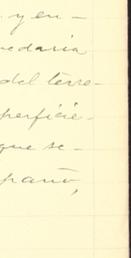 y en-
edaria
del terre-
perficie-
que se-
pano,